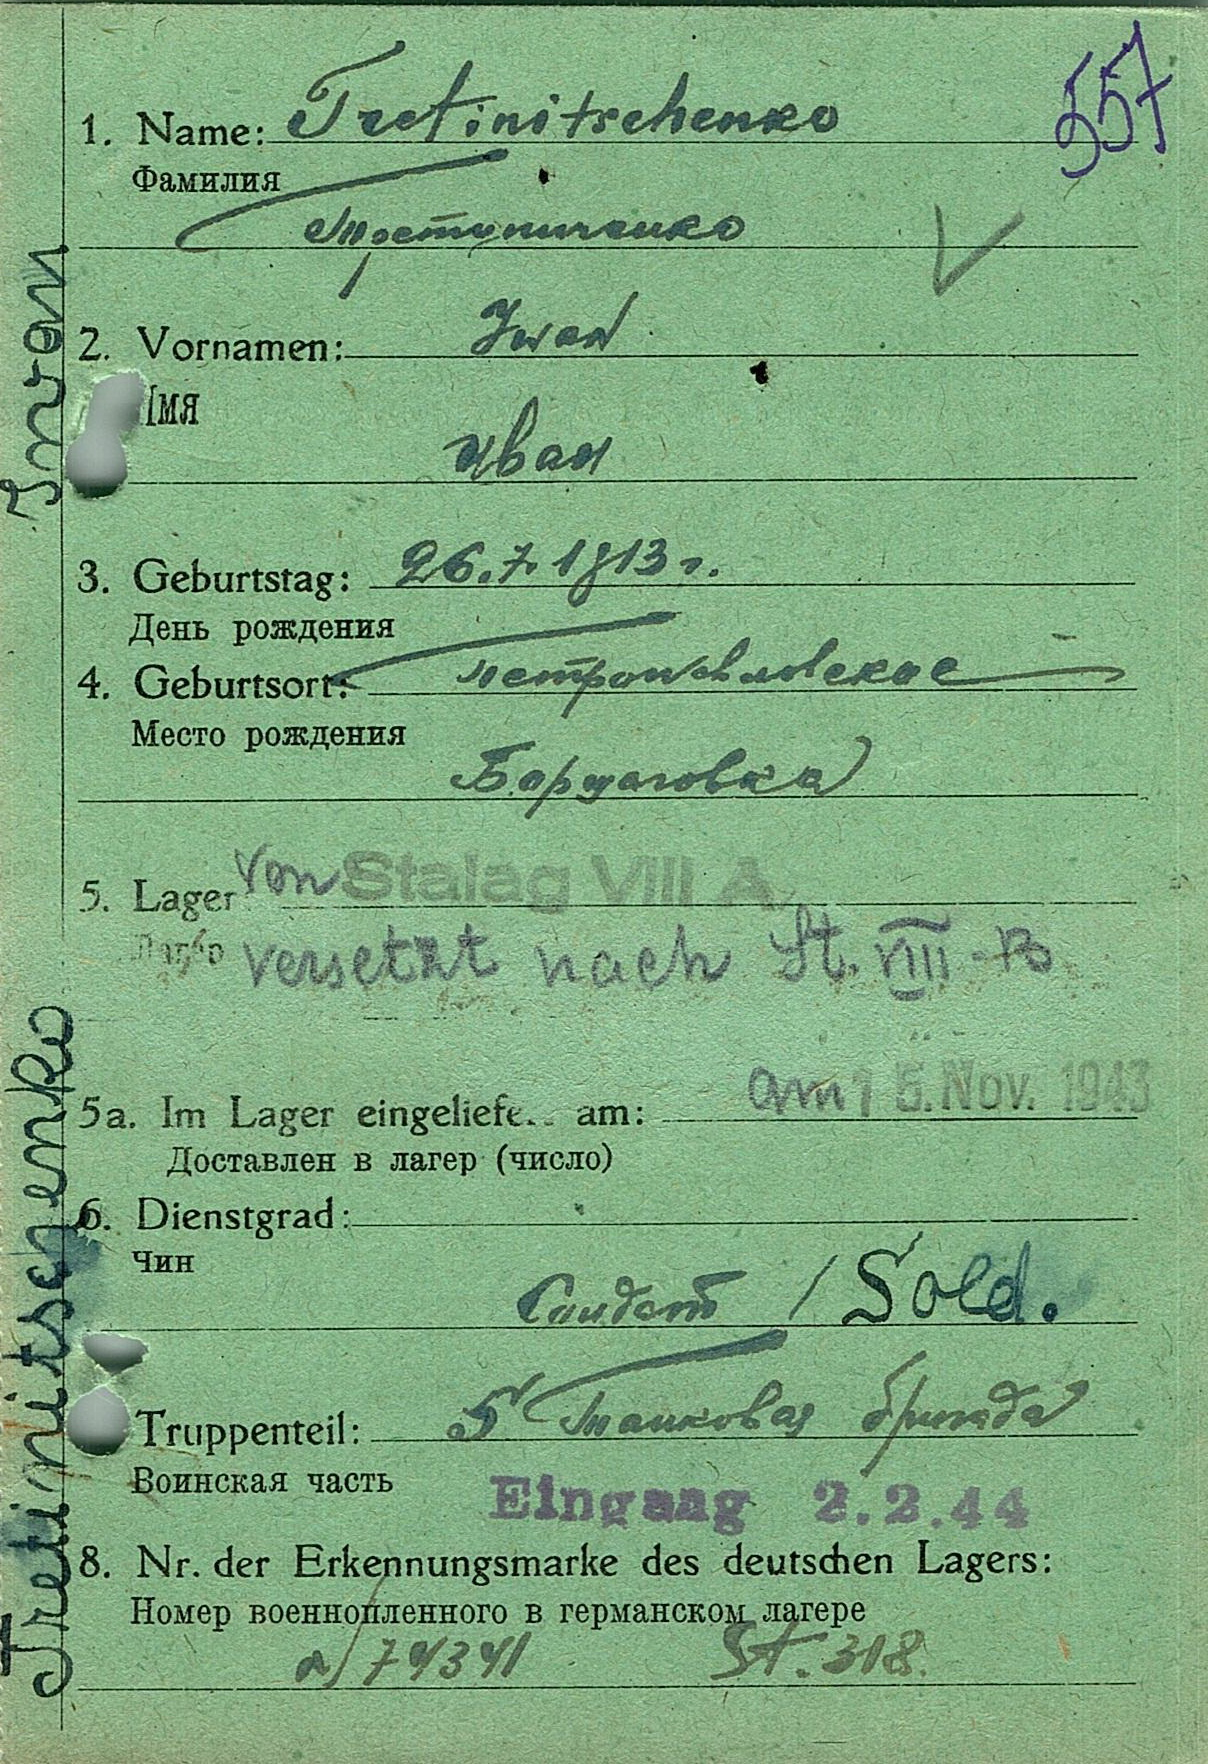 557
1. Name: Tretinitschenko
Фамилия
Третиниченко
2. Vornamen: Iwan
Имя
Иван
3. Geburtstag: 26.7.1913 г.
День рождения
4. Geburtsort: Петропавловское
Место рождения
Борщаговка
5. Lager von Stalag VIII A
versetzt nach St. VIII-B
5a. Im Lager eingeliefe.. am: am 15. Nov. 1943
Доставлен в лагер (число)
6. Dienstgrad:
Чин
Солдат / Sold.
Truppenteil: 5 Танковая бригада
Воинская часть
Eingang 2.2.44
8. Nr. der Erkennungsmarke des deutschen Lagers:
Номер военнопленного в германском лагере
74341 St. 318.
Tretinitschenko Iwan